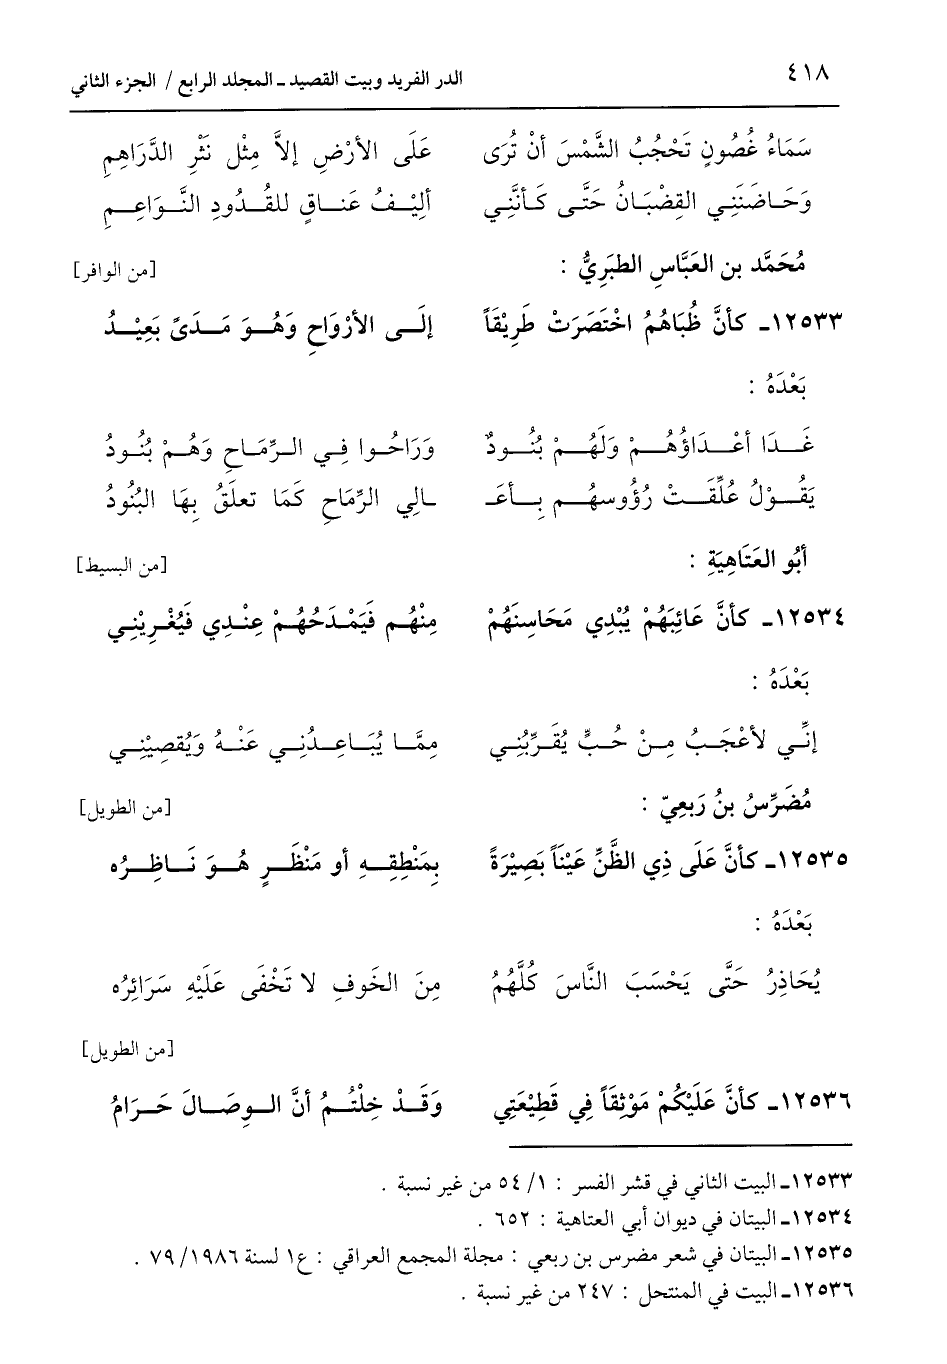 ٤١٨ الدر الفريد وبيت القصيد ـ المجلد الرابع / الجزء الثاني
سَمَاءُ غُصُونٍ تَحْجُبُ الشَّمْسَ أنْ تُرَى عَلَى الأرْضِ إلاَّ مِثْل نَثْرِ الدَّرَاهِمِ
وَحَاضَنَنِي القِضْبَانُ حَتَّى كَأنَّنِي ألِيْفُ عَنَاقٍ للقُدُودِ النَّوَاعِمِ
مُحَمَّد بن العَبَّاسِ الطبَرِيُّ : [من الوافر]
١٢٥٣٣ـ كأنَّ ظُبَاهُمُ اخْتَصَرَتْ طَرِيْقَاً إلَى الأرْوَاحِ وَهُوَ مَدَىً بَعِيْدُ
بَعْدَهُ :
غَدَا أعْدَاؤُهُمْ وَلَهُمْ بُنُودٌ وَرَاحُوا فِي الرِّمَاحِ وَهُمْ بُنُودُ
يَقُوْلُ عُلِّقَتْ رُؤُوسهُم بِأعَـ ـالِي الرِّمَاحِ كَمَا تعلَقُ بِهَا البُنُودُ
أبُو العَتَاهِيَةِ : [من البسيط]
١٢٥٣٤ـ كأنَّ عَائِبَهُمْ يُبْدِي مَحَاسِنَهُمْ مِنْهُم فَيَمْدَحُهُمْ عِنْدِي فَيُغْرِيْنِي
بَعْدَهُ :
إنِّي لأعْجَبُ مِنْ حُبٍّ يُقَرِّبُنِي مِمَّا يُبَاعِدُنِي عَنْهُ وَيُقصِيْنِي
مُضَرِّسُ بنُ رَبعِيّ : [من الطويل]
١٢٥٣٥ـ كأنَّ عَلَى ذِي الظَّنِّ عَيْنَاً بَصِيْرَةً بِمَنْطِقِهِ أو مَنْظَرٍ هُوَ نَاظِرُه
بَعْدَهُ :
يُحَاذِرُ حَتَّى يَحْسَبَ النَّاسَ كُلَّهُمُ مِنَ الخَوفِ لا تَخْفَى عَلَيْهِ سَرَائِرُه
[من الطويل]
١٢٥٣٦ـ كأنَّ عَلَيْكُمْ مَوْثِقَاً فِي قَطِيْعَتِي وَقَدْ خِلْتُمُ أنَّ الوِصَالَ حَرَامُ
١٢٥٣٣ـ البيت الثاني في قشر الفسر : ١/ ٥٤ من غير نسبة .
١٢٥٣٤ـ البيتان في ديوان أبي العتاهية : ٦٥٢ .
١٢٥٣٥ـ البيتان في شعر مضرس بن ربعي : مجلة المجمع العراقي : ع١ لسنة ١٩٨٦/ ٧٩ .
١٢٥٣٦ـ البيت في المنتحل : ٢٤٧ من غير نسبة .